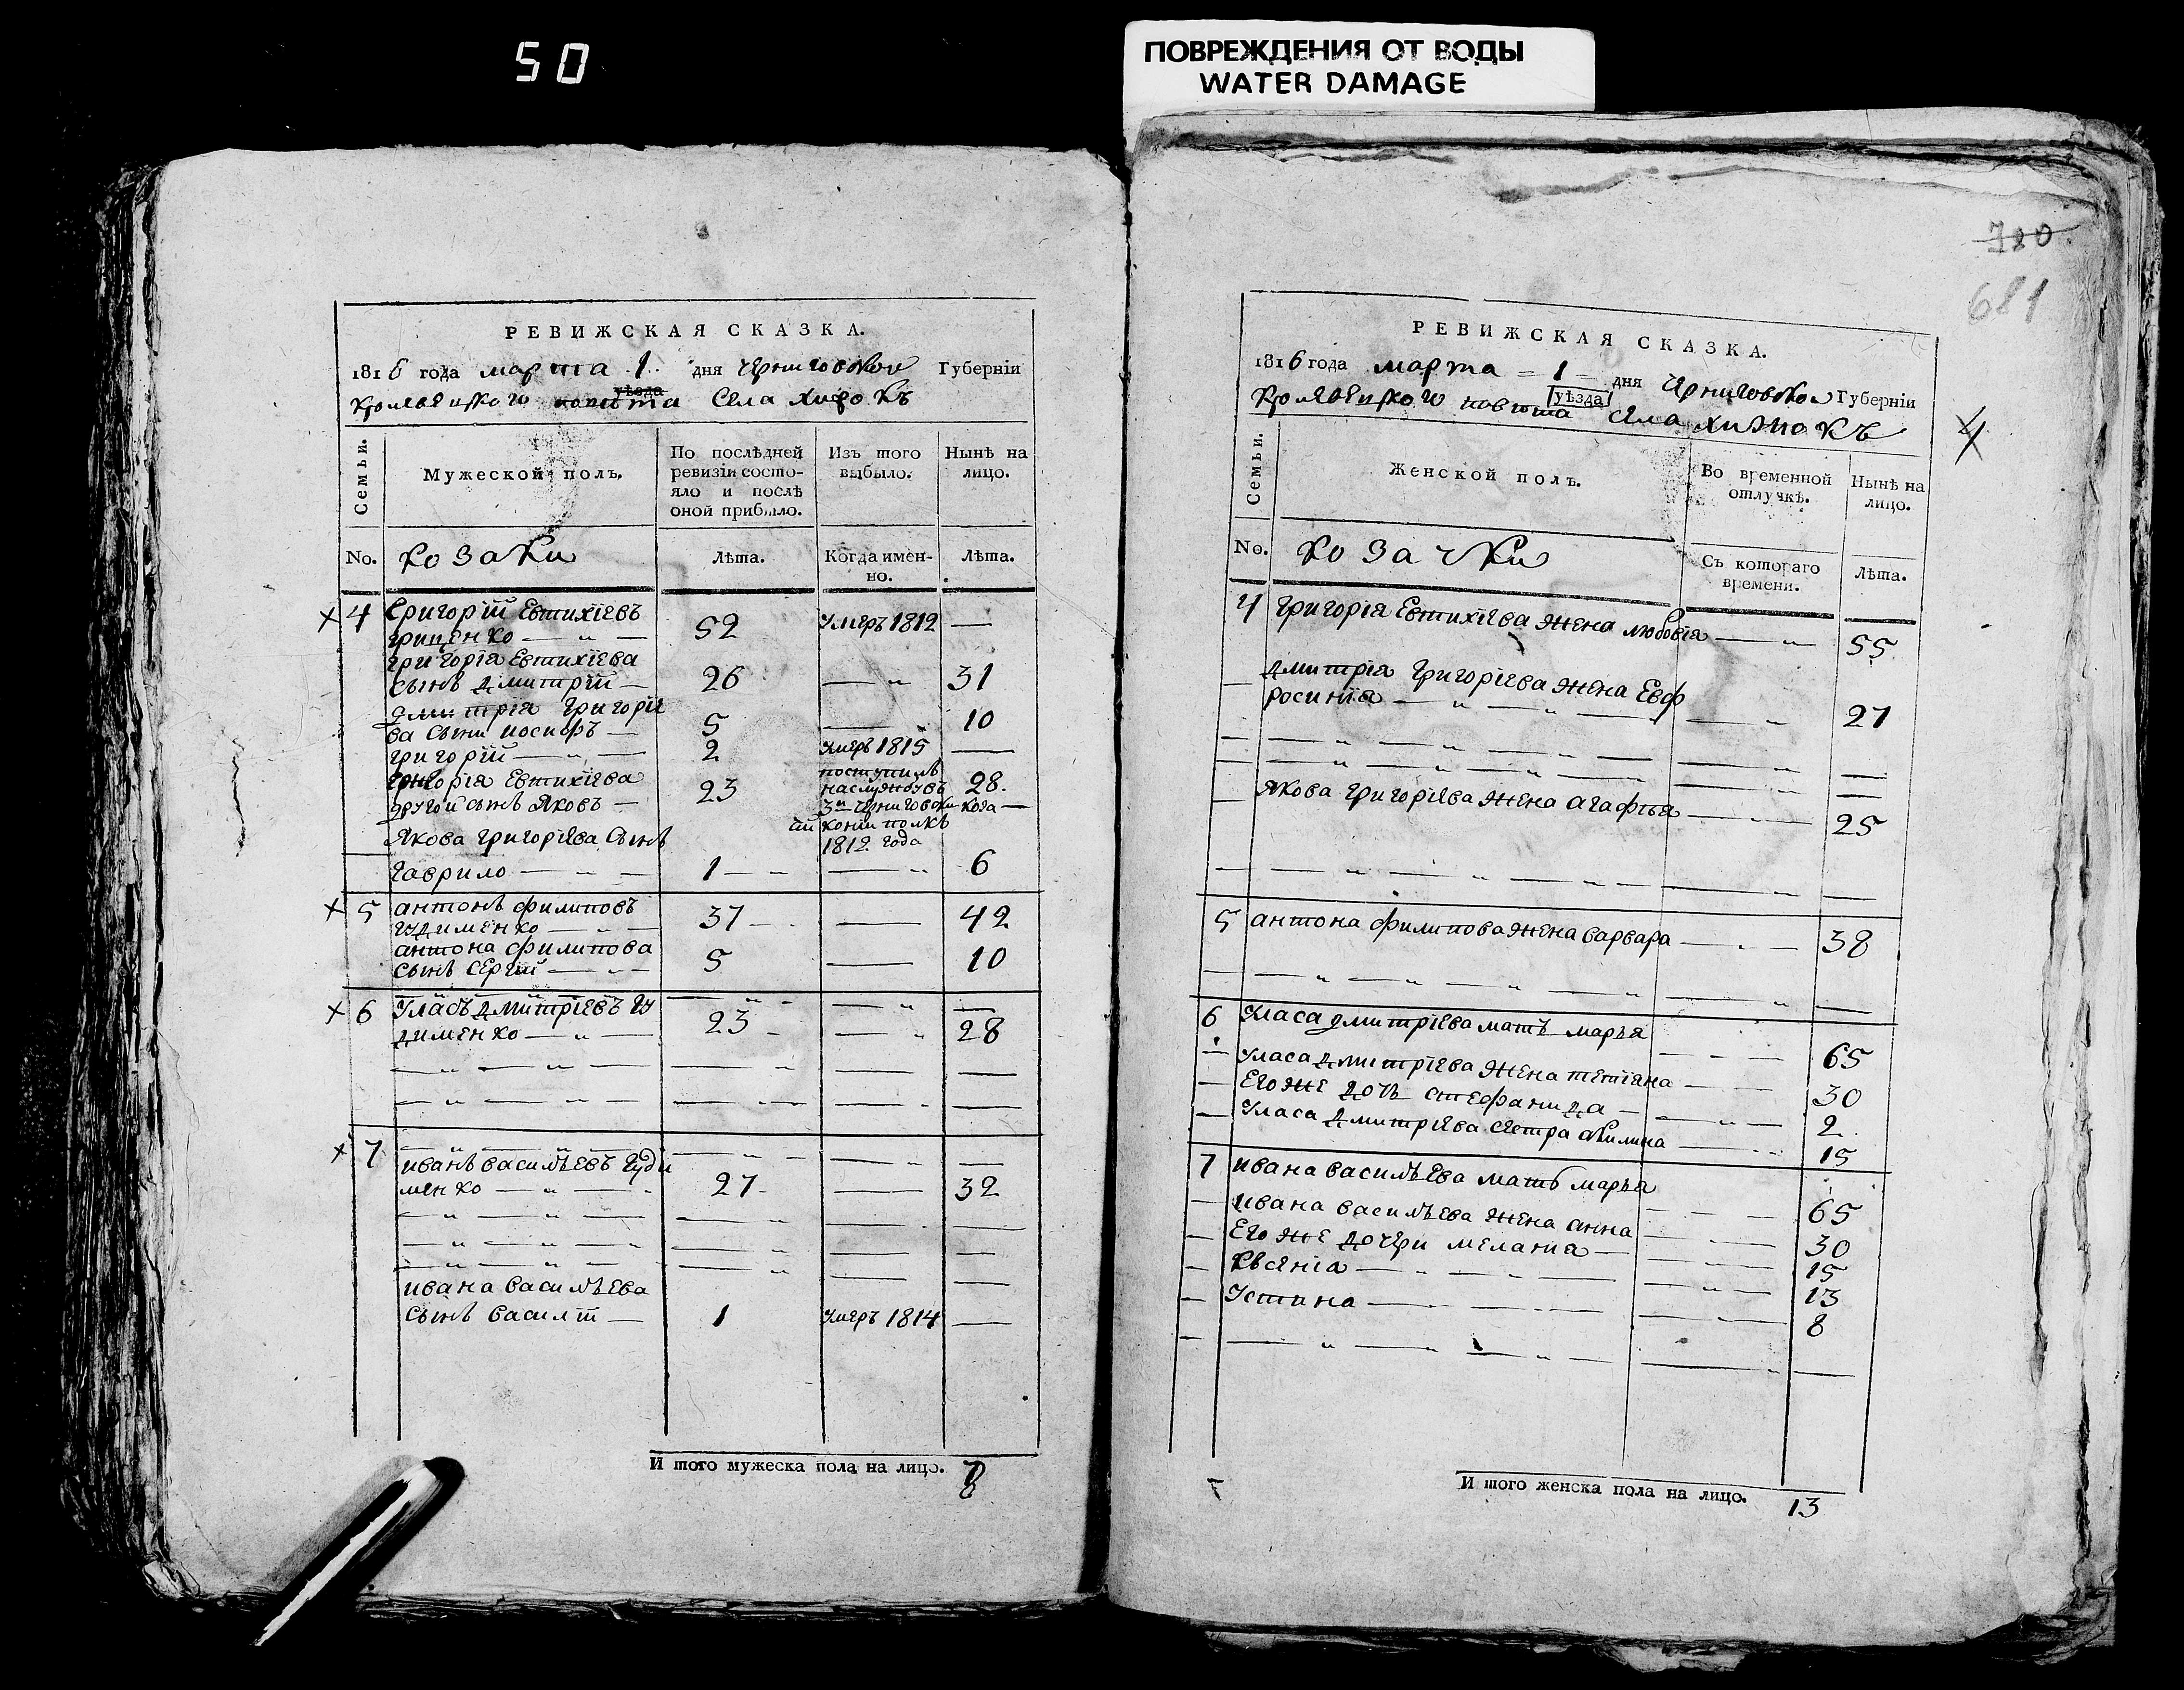 50
ПОВРЕЖДЕНИЯ ОТ ВОДЫ
WATER DAMAGE
РЕВИЖСКАЯ СКАЗКА.
1816 года марта 1 дня Черниговской Губерніи
уѣзда
Кролевецкого повѣта Села Хижокъ
Семьи.
Мужеской полъ.
По послѣдней ревизіи состо-
яло и послѣ
оной прибыло.
Изъ того
выбыло.
Нынѣ на
лицо.
No. козаки Лѣта. Когда имен-
но. Лѣта.
4 Григорій Евтихіевъ
Гриценко — " — 52 Умеръ 1812 —
Григорія Евтихіева
сынъ Дмитрій — 26 — " 31
Дмитрія Григоріе
ва сыни иосифъ — 5 — " 10
Григорій — " — 2 Умеръ 1815 —
Григорія Евтихіева
другой сынъ Яковъ — 23 поступилъ
наслужбувъ 28.
3й Чернигов
кони полкъ
1812 года
Якова Григоріева Сынъ
Гаврило — " — 1 — " — " 6
5 антонъ филиповъ
Гудименко — " — 37 — 42
антона филипова
сынъ Сергій — " — 5 — 10
6 Уласъ Дмитріевъ Гу
дименко — " — 23 — " 28
7 иванъ васильевъ Гуди
менко — " — 27 — 32
ивана васильева
сынъ василій — 1 Умеръ 1814 —
И того мужеска пола на лицо. 8
780
681
РЕВИЖСКАЯ СКАЗКА.
1816 года марта — 1 — дня Черниговской Губерніи
уѣзда
Кролевецкого повѣта села Хижокъ
Семьи.
Женской полъ.
Во временной
отлучкѣ.
Нынѣ на
лицо.
No. козачки Съ котораго
времени. Лѣта.
4 Григорія Евтихіева жена любовія — " 55
Дмитрія Григоріева жена Евф
росинія — " — " — 27
Якова Григоріева жена агафія — 25
5 антона филипова жена варвара — " — 38
6 Уласа Дмитріева мать марья 65
Уласа Дмитріева жена тетіяна 30
Его же дочь стефанида — 2
Уласа Дмитріева сестра акилина 15
7 ивана васильева мать марья 65
ивана васильева жена анна 30
Его же дочери мелания — 15
Ксенія — " — " — 13
Устина — " — 8
И того женска пола на лицо. 13